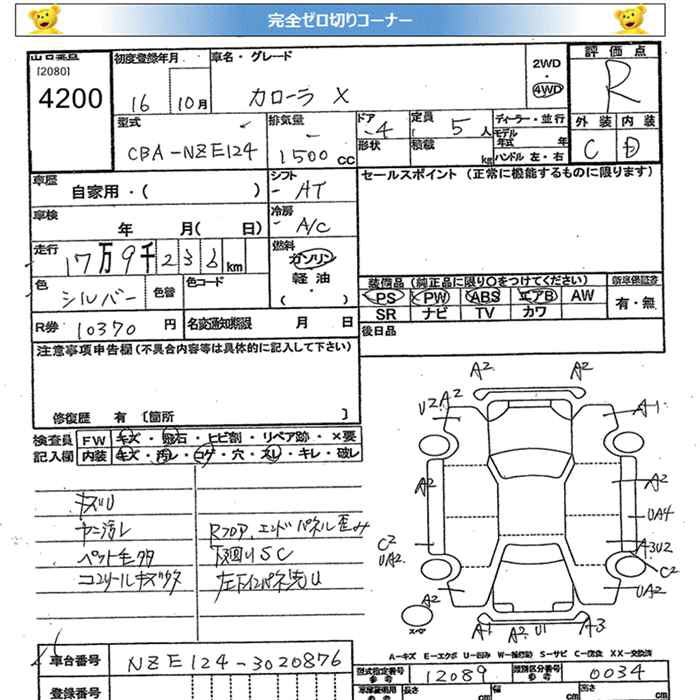 完全ゼロ切りコーナー
出品番号 初度登録年月 車名・グレード 評価点
[2080]
4200
16 10月 カローラ X
2WD
4WD
R
型式 排気量 ドア 定員 ディーラー・並行 外装 内装
CBA-NZE124 1500cc 4 5人
モデル年式 年
形状 積載 kg ハンドル 左・右
C D
車歴 自家用・( ) シフト AT
セールスポイント (正常に機能するものに限ります)
車検 年 月( 日) 冷房 A/C
走行 17万9千233km
燃料 ガソリン 軽油 ( ・ )
色 シルバー 色替 色コード
装備品(純正品に限り○をつけてください) 新車保証書
PS PW ABS エアB AW 有・無
SR ナビ TV カワ
R券 10370円 名変通知期限 月 日
後日品
注意事項申告欄(不具合内容等は具体的に記入して下さい)
修復歴 有 [箇所 ]
検査員記入欄 FW キズ・飛石・ヒビ割・リペア跡・×要
内装 キズ・汚レ・コゲ・穴・スレ・キレ・破レ
キズU
ヤニ汚レ Rフロア、エンドパネル歪み
ペット毛多 下廻りSC
左下インパネ先U
A2 A2
U2 A2 A-1
A2 A2
UA4
C2 A3U2
UA2 C2
UA2
A2
スペア
A1 A2 U1 A3
A-キズ E-エクボ U-凹み W-補修跡 S-サビ C-腐食 XX-交換済
車台番号 NZE124-3020876
型式指定番号 参考 12089 類別区分番号 参考 0034
登録番号
車庫証明用 参考 長さ cm 幅 cm 高さ cm